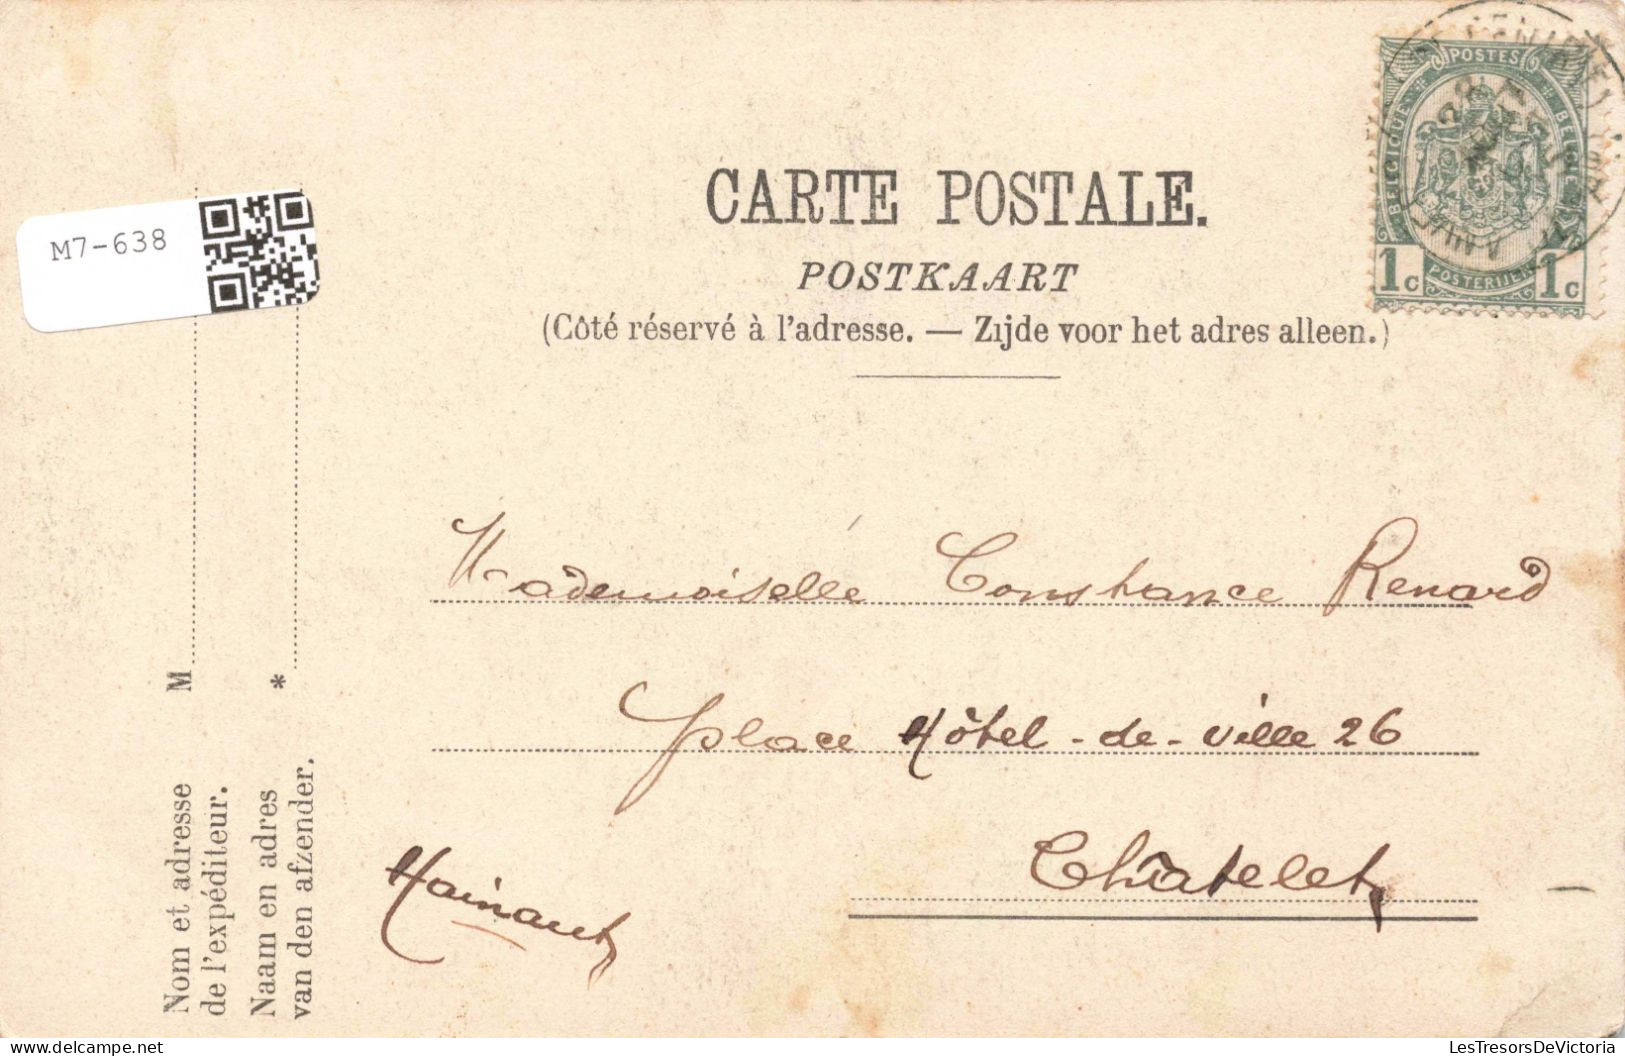 POSTES
BELGIQUE
BELGIE
1c 1c
POSTERIJEN
CARTE POSTALE.
POSTKAART
(Côté réservé à l'adresse. — Zijde voor het adres alleen.)
M7-638
Mademoiselle Constance Renard
place Hôtel-de-Ville 26
Châtelet
Hainaut
M
*
Nom et adresse
de l'expéditeur.
Naam en adres
van den afzender.
LesTresorsDeVictoria